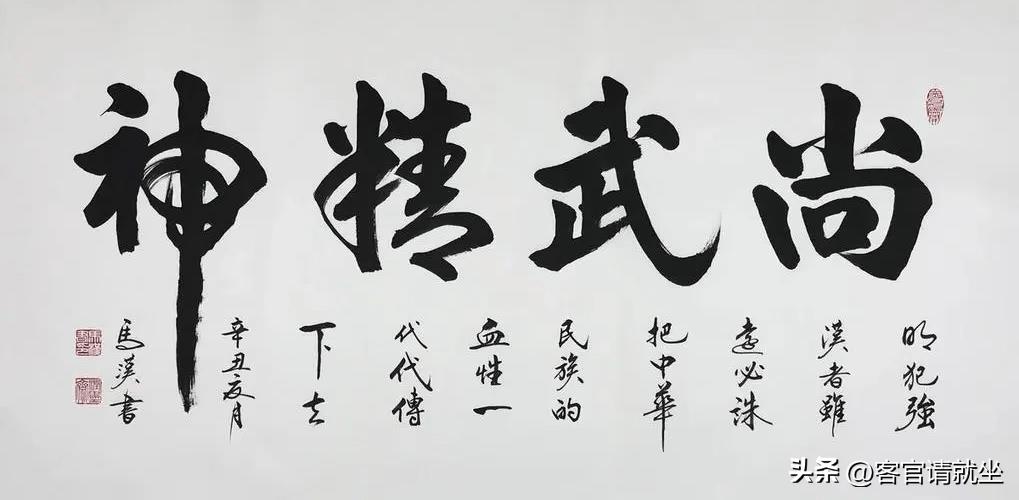 尚武精神
明犯強
漢者雖
遠必誅
把中華
民族的
血性一
代代傳
下去
辛丑夏月
馬漢書
头条 @客官请就坐